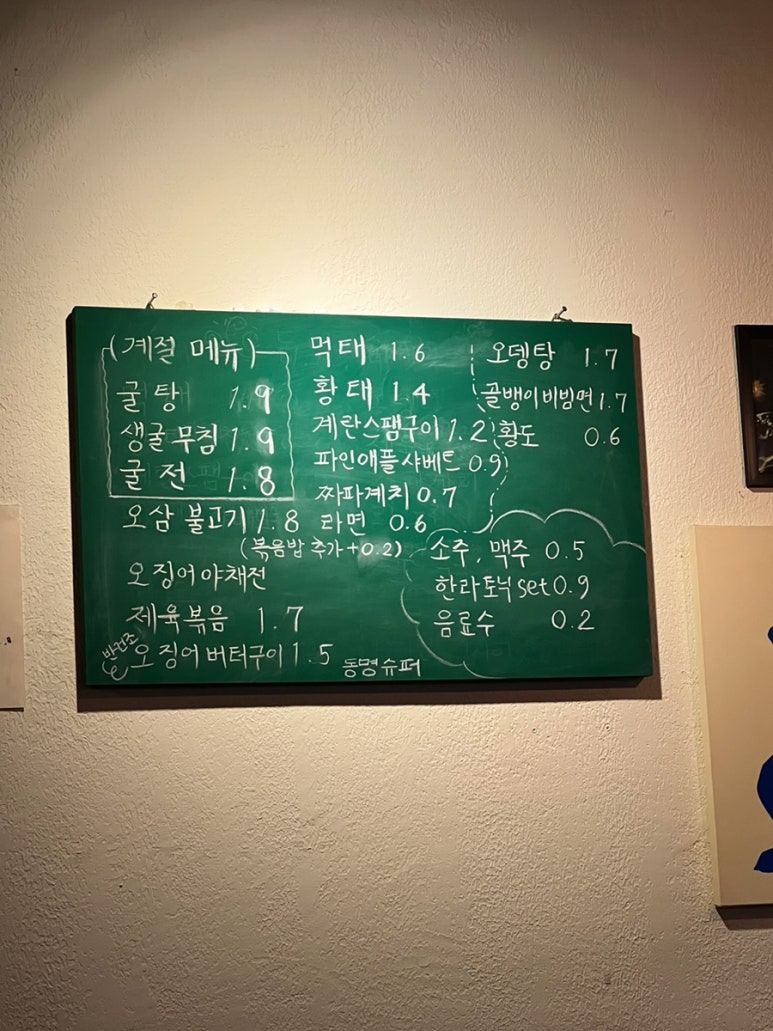 (계절 메뉴)
굴탕 1.9
생굴무침 1.9
굴전 1.8
오삼 불고기 1.8
(볶음밥 추가+0.2)
오징어야채전
제육볶음 1.7
반건조 오징어버터구이 1.5
먹태 1.6
황태 1.4
계란스팸구이 1.2
파인애플샤베트 0.9
짜파계치 0.7
라면 0.6
오뎅탕 1.7
골뱅이비빔면 1.7
황도 0.6
소주, 맥주 0.5
한라토닉set 0.9
음료수 0.2
동명슈퍼